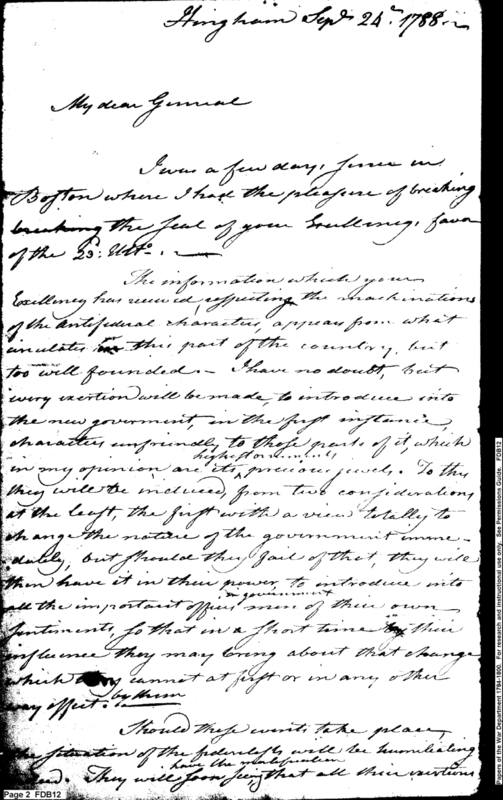 Hingham Sepr. 24th. 1788
My dear General
I was a few days, since in
Boston where I had the pleasure of breaking
breaking the seal of your Excellency, favor
of the 23d: Ulto.
The information which your
Excellency has received, respecting the machinations
of the antifederal characters, appears from what
circulates in this part of the country, but
too well founded. I have no doubt, but
every exertion will be made, to introduce into
the new goverment, in the first instance,
characters unfriendly to those parts of it, which
highest ornaments
in my opinion are its, precious jewels. To this
they will be induced, from two considerations
at the least, the first with a view totally to
change the nature of the government imme-
diately, but should they fail of that, they will
then have it in their power, to introduce into
in government
all the important offices men of their own
sentiments, so that in a short time by their
influence they may bring about that change
which cannot at first or in any other
way effect. by them
Should these events take place,
the situation of the federalists will be humiliating
have the mortification
indeed. They will soon seeing that all their exertions
Page 2 FDB12
Papers of the War Department 1784-1800. For research and instructional use only. See Permission Guide. FDB12